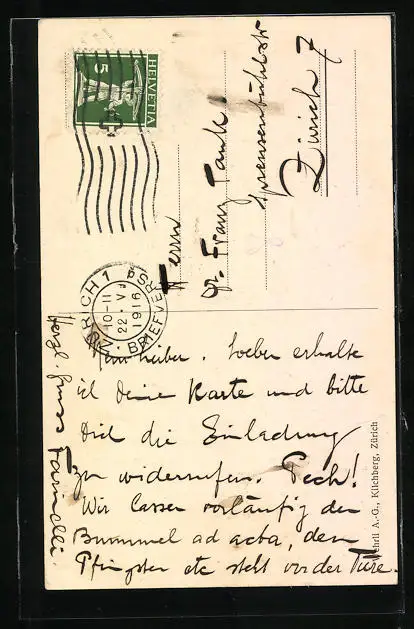 HELVETIA
5
ZÜRICH 1
BRIEFVERSD
10-11
22. V.
1916
Herrn
Dr. Franz Tank
Sprensenbühlstr
Zürich 7
Mein lieber. Soeben erhalte
ich deine Karte und bitte
dich die Einladung
zu widerrufen. Pech!
Wir lassen vorläufig den
Bummel ad acta, denn
Pfingsten etc steht vor der Türe.
Herzl. Gruss
A.-G., Kilchberg, Zürich